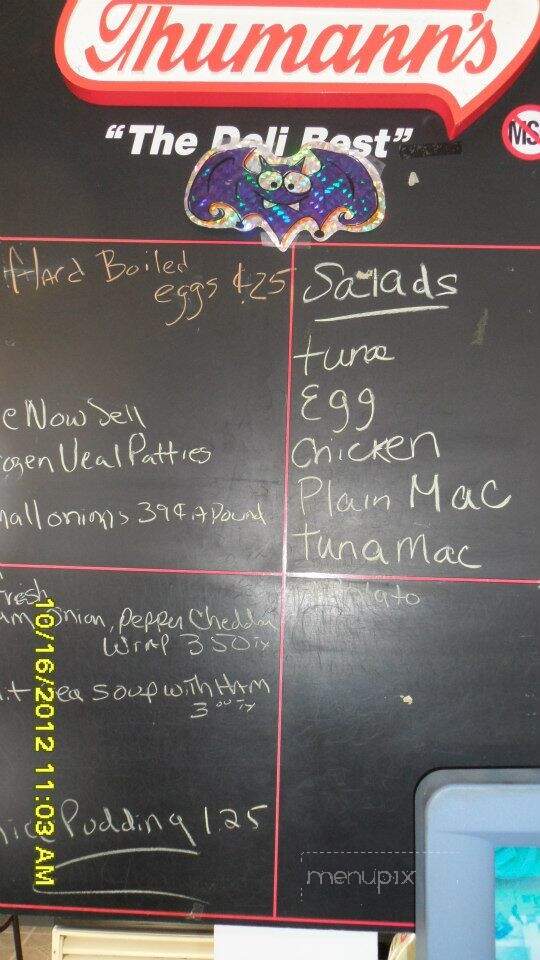 Thumann's
"The Deli Best"
MS
Hard Boiled
eggs ¢25
e Now Sell
ozen Veal Patties
mall onions 39¢ a Pound
resh
am, Onion, Pepper Cheddar
Wrap 3.50
it Pea Soup with Ham
3.00
ice Pudding 1.25
Salads
tuna
Egg
Chicken
Plain Mac
tuna Mac
10/16/2012 11:03 AM
menupix